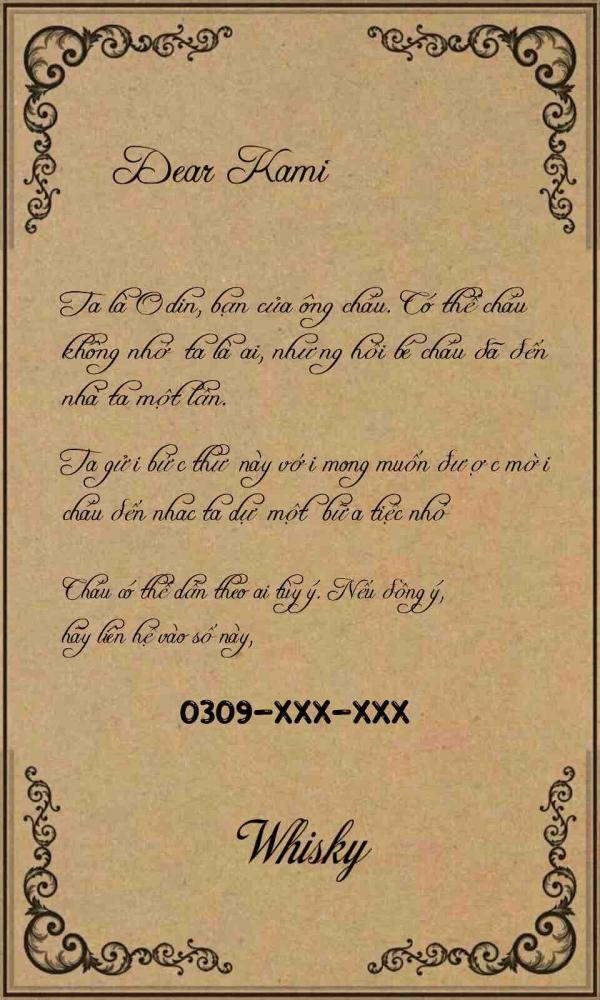 Dear Kami
Ta là Odin, bạn của ông cháu. Có thể cháu
không nhớ ta là ai, nhưng hồi bé cháu đã đến
nhà ta một lần.
Ta gửi bức thư này với mong muốn được mời
cháu đến nhac ta dự một bữa tiệc nhỏ
Cháu có thể dẫn theo ai tùy ý. Nếu đồng ý,
hãy liên hệ vào số này,
0309-XXX-XXX
Whisky